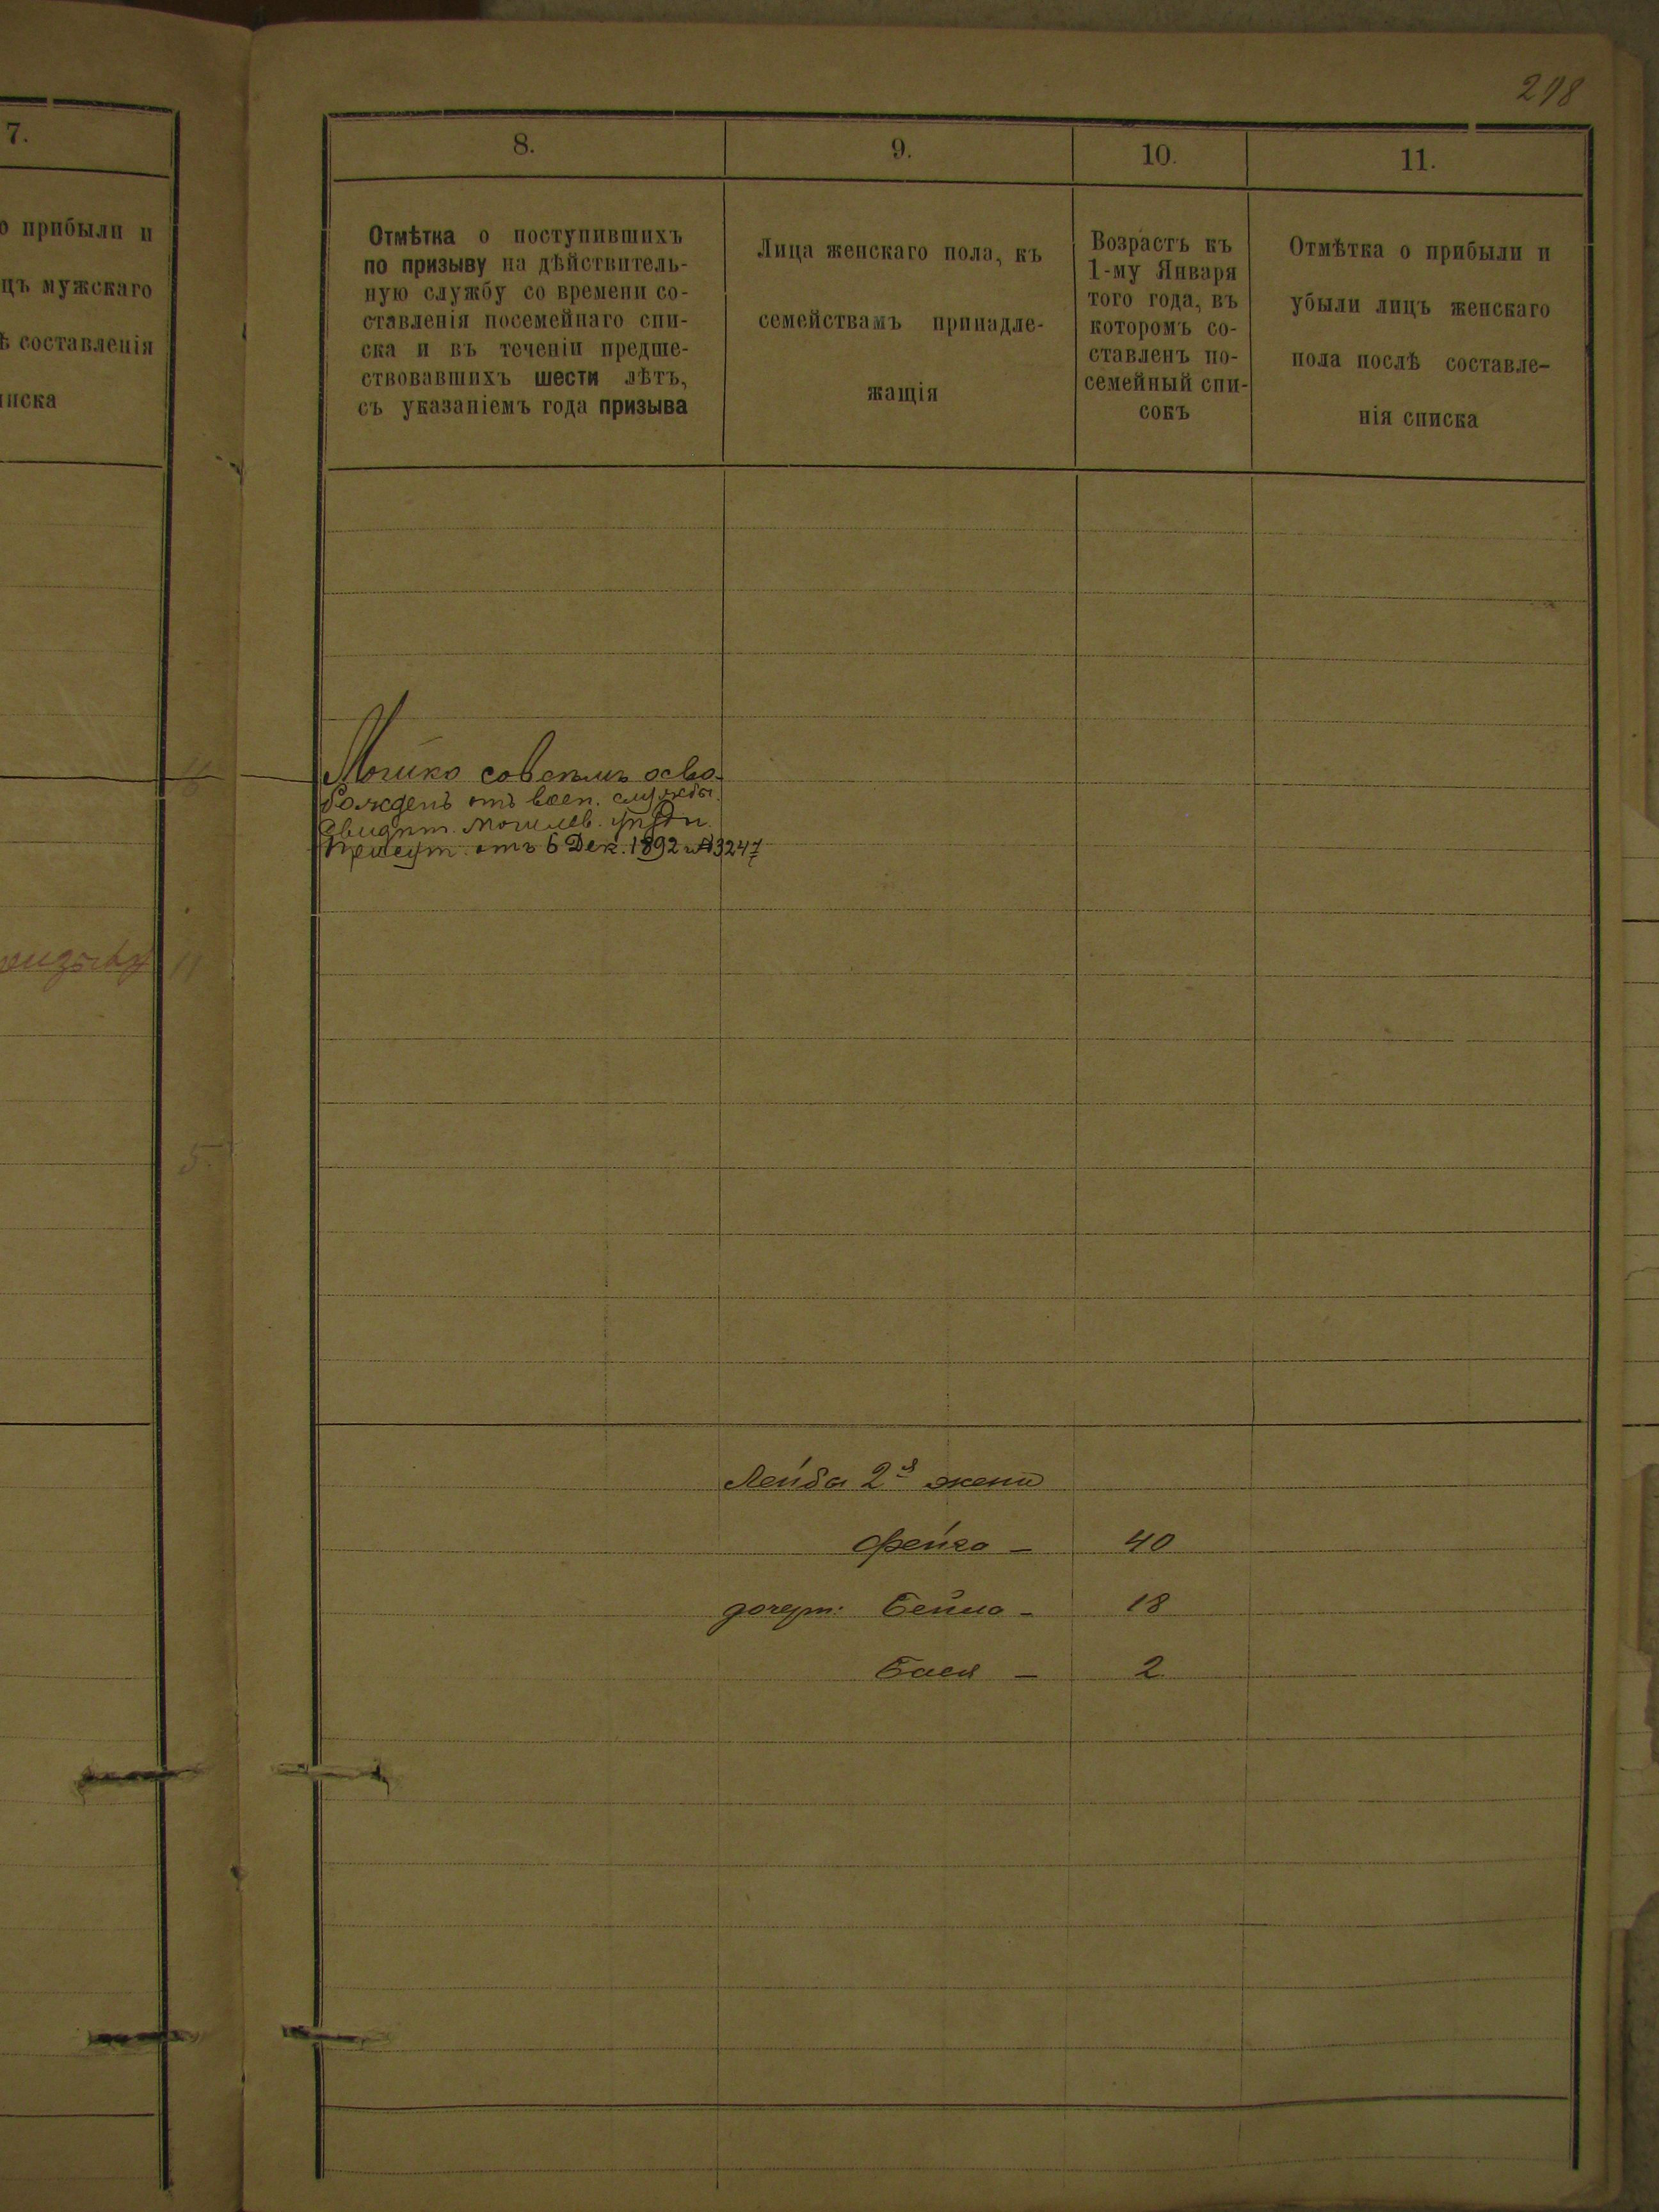 298
7.
о прибыли и
цъ мужскаго
ѣ составленія
иска
8.
9.
10.
11.
Отмѣтка о поступившихъ
по призыву на дѣйствитель-
ную службу со времени со-
ставленія посемейнаго спи-
ска и въ теченіи предше-
ствовавшихъ шести лѣтъ,
съ указаніемъ года призыва
Лица женскаго пола, къ
семействамъ принадле-
жащія
Возрастъ къ
1-му Января
того года, въ
которомъ со-
ставленъ по-
семейный спи-
сокъ
Отмѣтка о прибыли и
убыли лицъ женскаго
пола послѣ составле-
нія списка
совсѣмъ осво-
божденъ отъ воен. службы.
Свидѣт. Могилев. уѣздн.
Присут. отъ 6 Дек. 1892 № 3247
Лейба 2я жена
Фейга - 40
дочери: Бейла - 18
Бася - 2